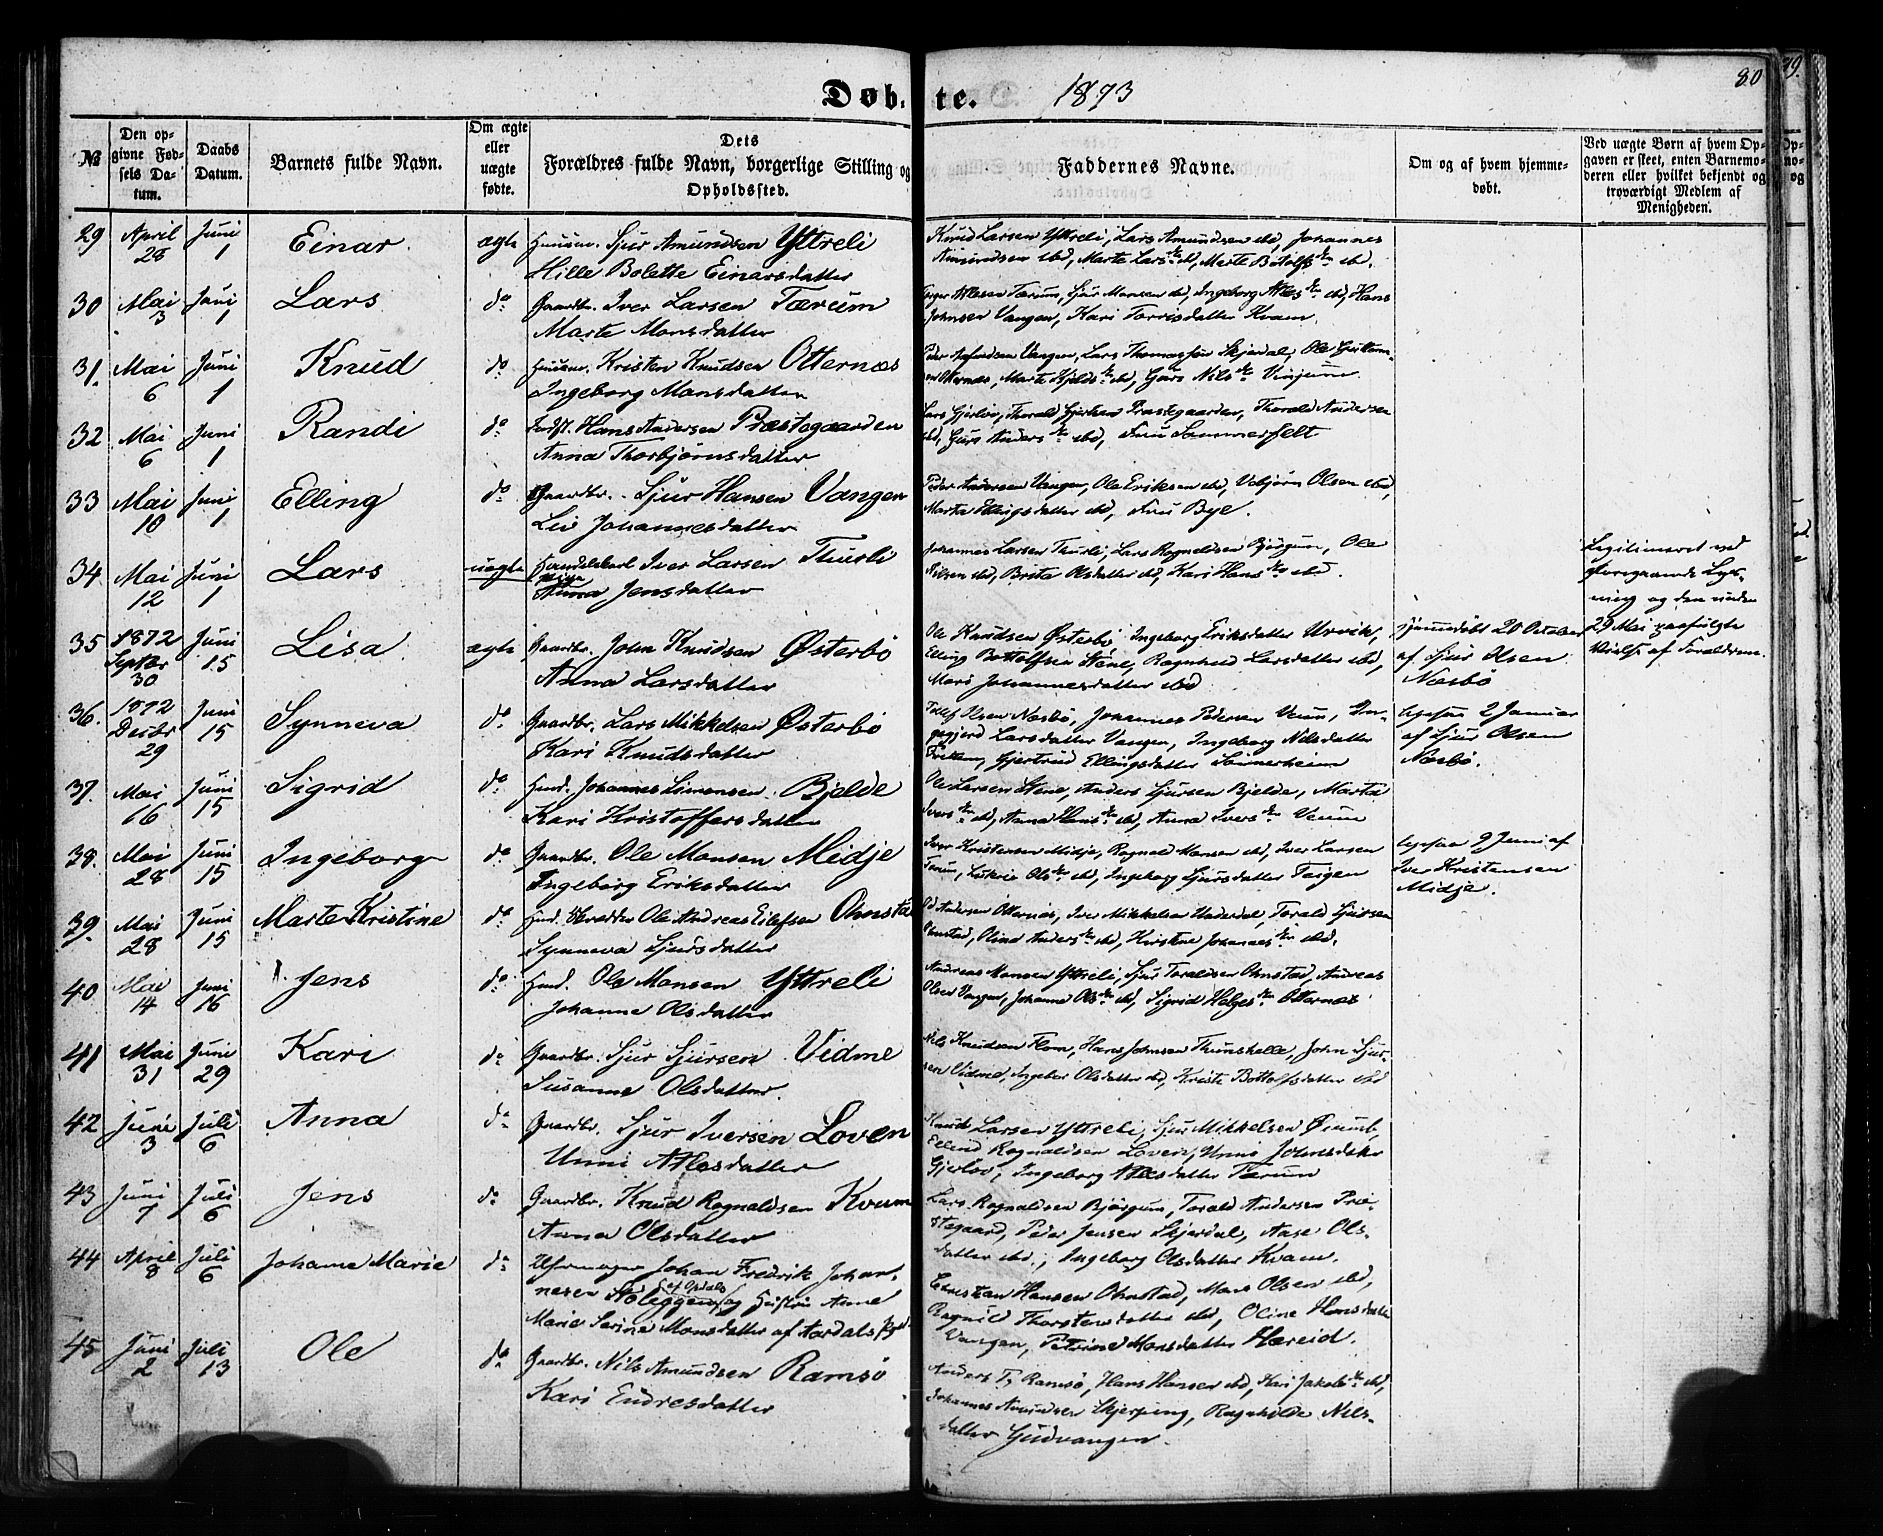 Døb- te. 1873
80
№
Den opgivne Fødsels Datum.
Daabs Datum.
Barnets fulde Navn.
Om ægte eller uægte fødte.
Dets Forældres fulde Navn, borgerlige Stilling og Opholdsted.
Faddernes Navne.
Om og af hvem hjemmedøbt.
Ved uægte Børn af hvem Opgaven er skeet, enten Barnemoderen eller hvilket bekjendt og troværdigt Medlem af Menigheden.
29 April 28 Juni 1 Einar ægte Huusm. Sjur Amundsen Yttreli
Hille Bolette Einarsdatter
Knud Larsen Yttreli, Lars Amundsen ibd, Johannes
Amundsen ibd, Marte Larsdtr ibd, Marte Botolfsdtr ibd.
30 Mai 3 Juni 1 Lars do Gaardbr. Iver Larsen Tærum
Marte Monsdatter
Atlessen Tærum, Sjur Monsen ibd, Ingeborg Atlesdtr ibd, Hans
Johnsen Vangen, Kari Torrisdatter Kvam.
31. Mai 6 Juni 1 Knud do Huusm. Kristen Knudsen Otternæs
Ingeborg Monsdatter
Vangen, Lars Thomassen Skjerdal, Ole
Otternæs, Marte ibd, Guro Nilsdtr Vinjum.
32 Mai 6 Juni 1 Randi do Hans Andersen Præstegaarden
Anna Thorbjørnsdatter
Lars Gjerløv, Thorald Præstegaarden, Thorald Andersen
ibd, Guro Andersdtr ibd, Fru Sommerfelt
33 Mai 10 Juni 1 Elling do Gaardbr. Sjur Hansen Vangen
Liv Johannesdatter
Peder Andersen Vangen, Ole Eriksen ibd, Vebjørn Olsen ibd,
Marta Ellingsdatter ibd, Fru Bye.
34 Mai 12 Juni 1 Lars uægte Iver Larsen Thurli
Pige Anna Jensdatter
Johannes Larsen Thurli, Lars Rognaldsen Bjørgum, Ole
Nilsen ibd, Brita Olsdatter ibd, Kari Hansdtr ibd.
Legitimeret ved
foregaaende Lys-
ning og den under
29 Mai paafulgte
Vielse af Forældrene.
35 1872 Septbr 30 Juni 15 Lisa ægte Gaardbr. John Knudsen Østerbø
Anna Larsdatter
Ole Knudsen Østerbø, Ingeborg Eriksdatter Urvik,
Elling Bottolfsen Stene, Ragnhild Larsdatter ibd,
Mari Johannesdatter ibd
Hjemmedøbt 20 October
af Sjur Olsen
Næsbø
36. 1872 Decbr 29 Juni 15 Synneva do Gaardbr. Lars Mikkelsen Østerbø
Kari Knudsdatter
Olsen Næsbø, Johannes Pedersen Venum, In-
Larsdatter Vangen, Ingeborg Nilsdatter
Gjertrud Ellingsdatter Sonnerheim
ligesaa 2 Januar
af Sjur Olsen
Næsbø.
37. Mai 16 Juni 15 Sigrid do Huusm. Johannes Simonsen Bjelde
Kari Kristoffersdatter
Ole Larsen Stene, Anders Sjursen Bjelde, Marta
Iversdtr ibd, Anna Hansdtr ibd, Anna Iversdtr
38. Mai 28 Juni 15 Ingeborg do Gaardbr. Ole Monsen Midje
Ingeborg Eriksdatter
Iver Kristensen Midje, Rognald Monsen ibd, Iver Larsen
Tærum, Olsdtr ibd, Ingeborg Sjursdatter Teigen
ligesaa 9 Juni af
Iver Kristensen
Midje.
39. Mai 28 Juni 15 Marte Kristine do Huusm. Skrædder Ole Andreas Eilefsen Ohnstad
Synneva Sjursdatter
Andersen Otternæs, Iver Mikkelsen Underdal, Torald Sjursen
Ohnstad, Olina Andersdtr ibd, Kirstine Johannesdtr ibd.
40 Mai 14 Juni 16 Jens do Huusm. Ole Monsen Yttreli
Johanne Olsdatter
Andreas Monsen Yttreli, Sjur Toraldsen Ohnstad, Andreas
Olsen Vangen, Johanne Olsdtr ibd, Sigrid Helgesdtr Otternæs
41 Mai 31 Juni 29 Kari do Gaardbr. Sjur Sjursen Vidme
Susanne Olsdatter.
Nils Knudsen Flom, Hans Johnsen Thunshelle, John Sjur-
sen Vidme, Ingebor Olsdatter ibd, Kristi Bottolfsdatter ibd
42 Juni 3 Juli 6 Anna do Gaardbr. Sjur Iversen Loven
Unni Atlesdatter
Knud Larsen Yttreli, Sjur Mikkelsen
Erlend Rognaldsen Loven, Unni Johnsdatter
Gjerløv, Ingeborg Atlesdatter Tærum
43 Juni 7 Juli 6 Jens do Gaardbr. Knud Rognaldsen Kvam
Anna Olsdatter
Lars Rognaldsen Bjørgum, Torald Andersen Præ-
stegaard, Peder Jensen Skjerdal, Aase Ols-
datter ibd., Ingeborg Olsdatter Kvam.
44 April 8 Juli 6 Johanne Marie do Uhrmager Johan Fredrik Johan-
nesen Støleggen af Opdals og Hustru Anne
Marie Serine Monsdatter af Aardals Pgd
Christian Hansen Ohnstad, Mons Olsen ibd,
Ragnild Thorstensdatter ibd, Oline Hansdatter
Vangen, Petrine Monsdatter Hæreid.
45 Juni 2 Juli 13 Ole do Gaardbr. Nils Amundsen Ramsø
Kari Endresdatter
Anders Ramsø, Hans Hansen ibd, Kari Jakobsdtr ibd,
Johannes Amundsen Skjerping, Ragnhilde Nils-
datter Gudvangen.